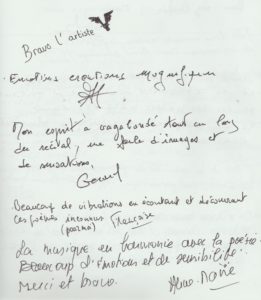 Bravo l'artiste
Emotions émotions magnifiques
Mon esprit a vagabondé tout au long
du récital, une foule d'images et
de sensations.
Beaucoup de vibrations en écoutant et découvrant
ces poèmes inconnus Françoise
(poème)
La musique en harmonie avec la poésie
Beaucoup d'émotions et de sensibilité.
Merci et bravo.